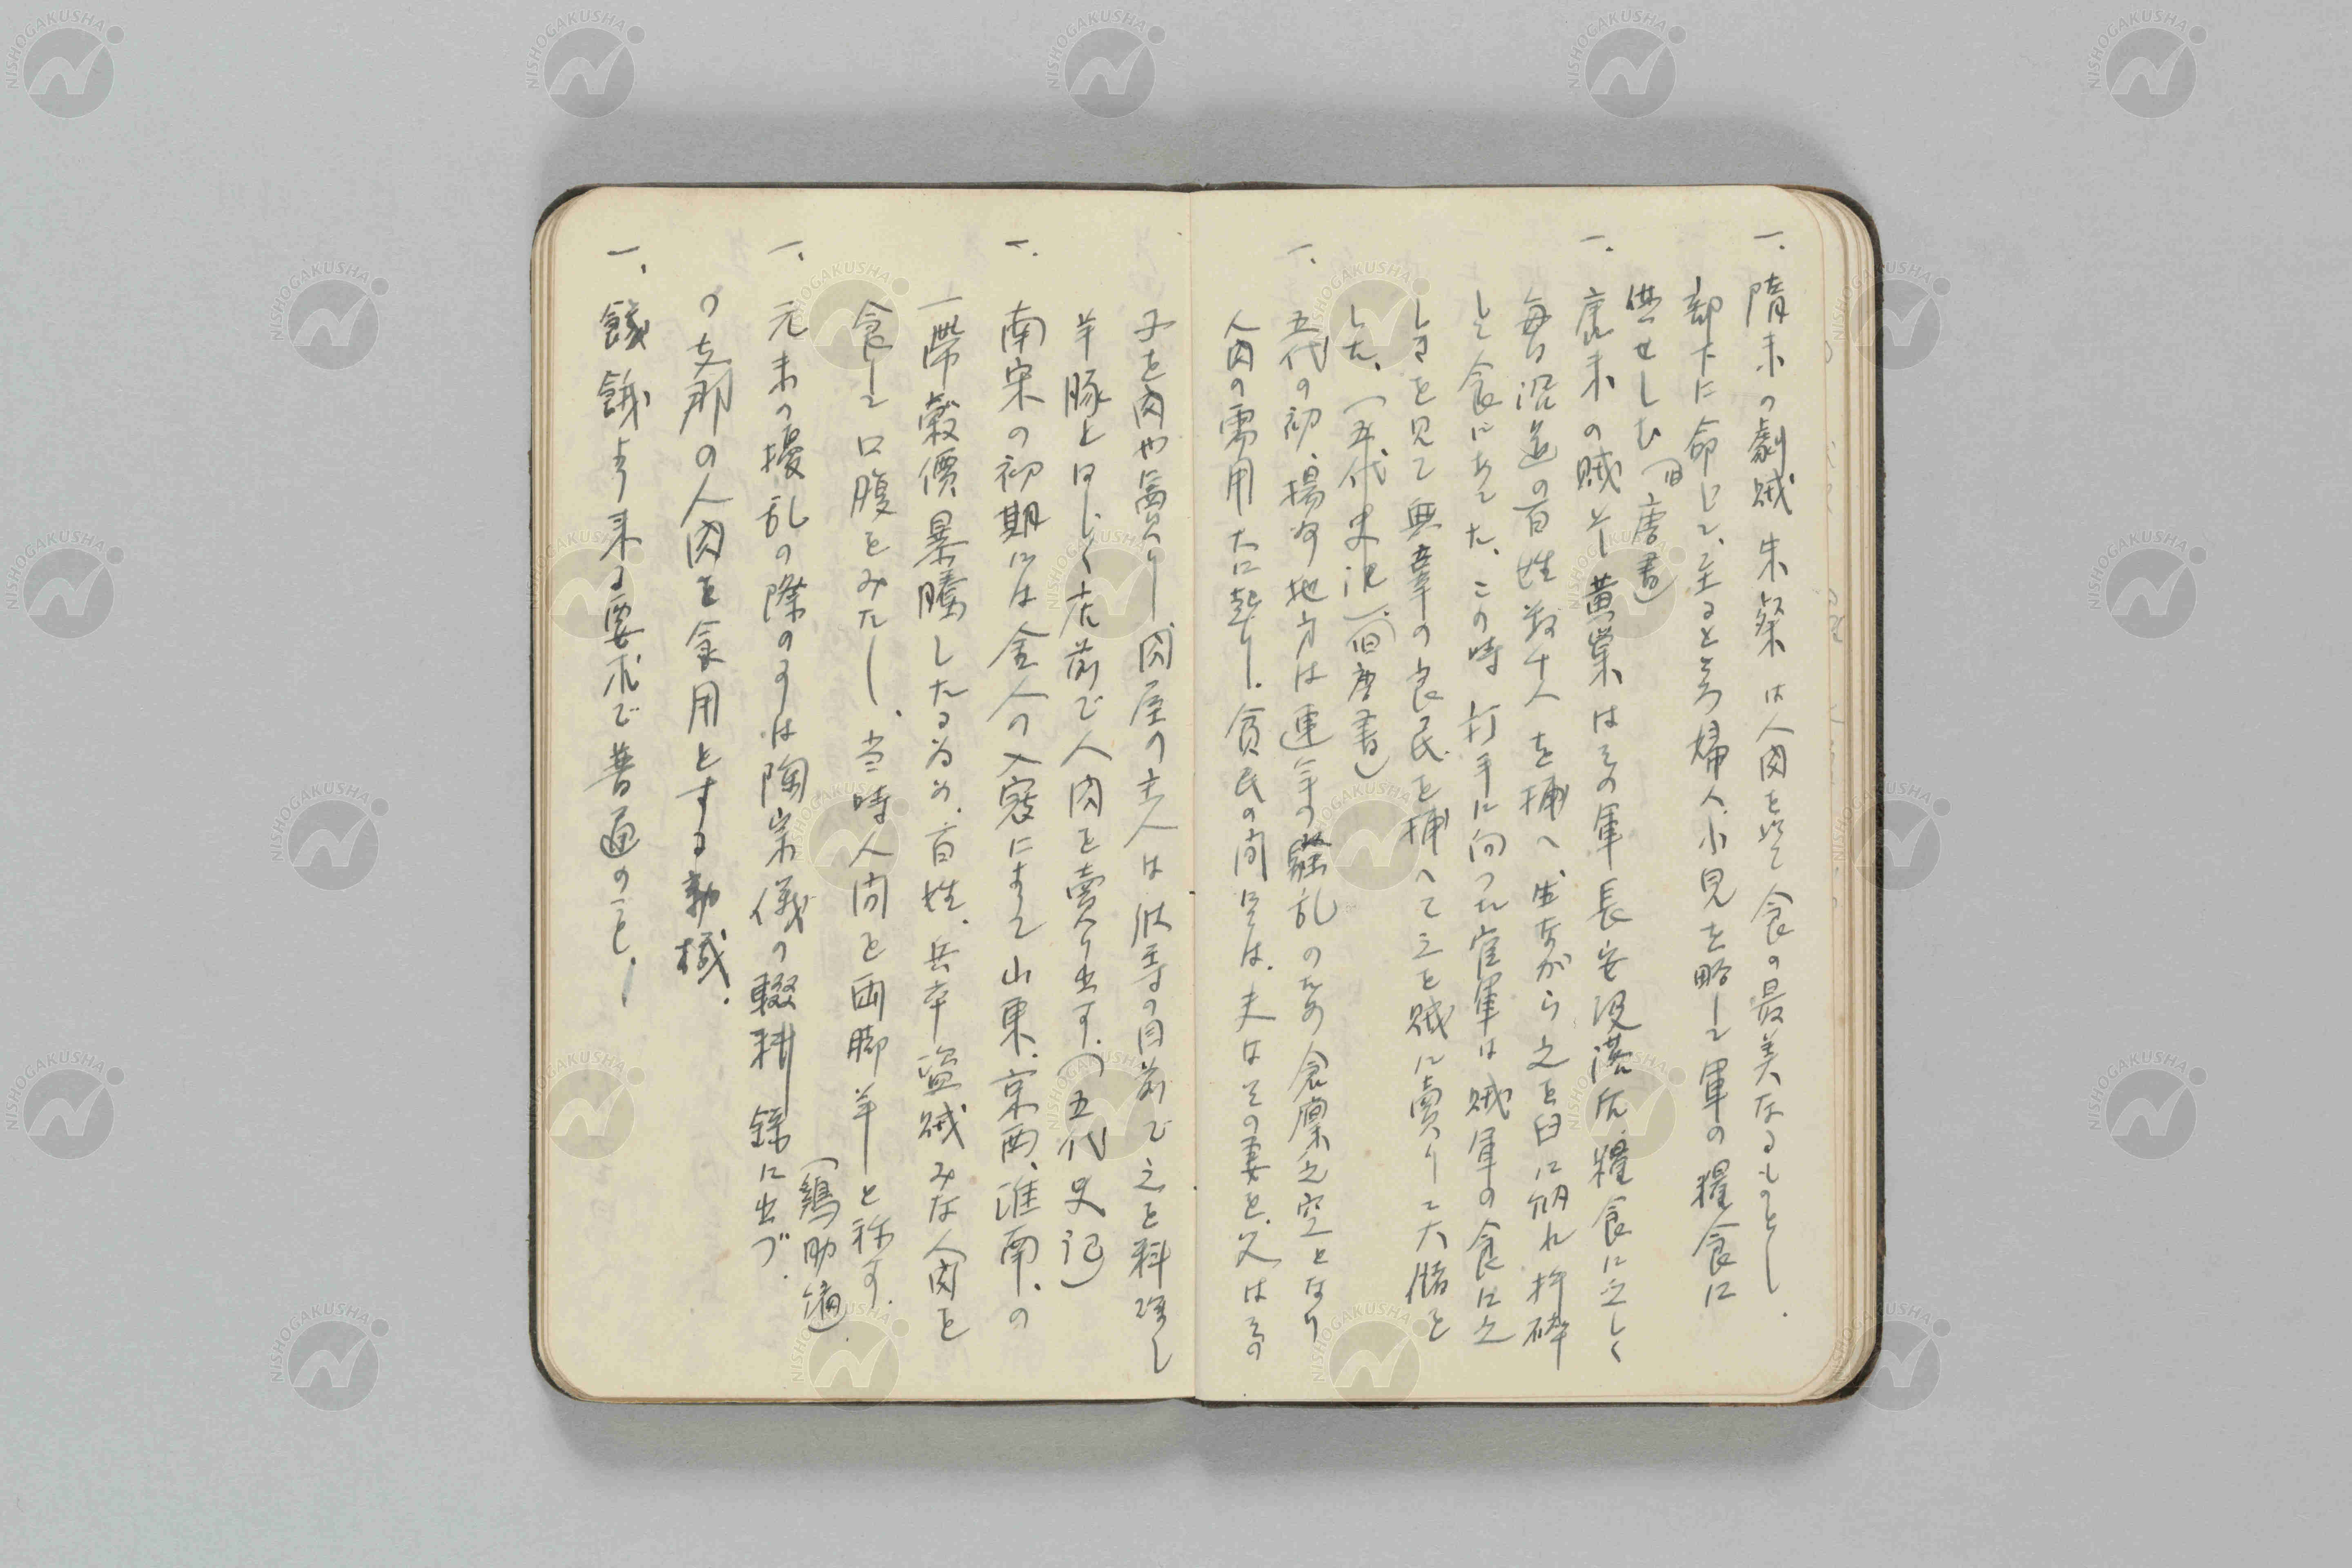 一、隋末の劇賊朱粲は人肉を以て食の最美なるものとし、
部下に命じて、至るところ婦人小児を略して軍の糧食に
供せしむ(旧唐書)
一、唐末の賊、黄巣はその軍長安没落后、糧食に乏しく
毎日沿道の百姓数千人を捕へ、生ながら之を臼に納れ杵砕
して食にあてた、この時打手に向つた官軍は賊軍の食に乏
しきを見て無辜の良民を捕へて之を賊に売りて大儲を
した、(五代史記)(旧唐書)
一、五代の初、揚州地方は連年の騒乱のため倉廩之空となり
人肉の需用大に起り、貧民の間では、夫はその妻を、父はその
子を肉や売り、肉屋の主人は彼等の目前で之を料理し
羊豚と同じく店前で人肉を売り出す、(五代史記)
一、南宋の初期には金人の入寇によつて山東、京西、淮南、の
一帯穀價暴騰したる為め、百姓、兵卒盗賊みな人肉を
食して口腹をみたし、当時人肉を両脚羊と称す、
(鶏肋編)
一、元末の擾乱の際のすは陶宗儀の輟耕録に出づ、
の支那の人肉を食用とする動機、
一、饑餓より来る要求で普通のこと、